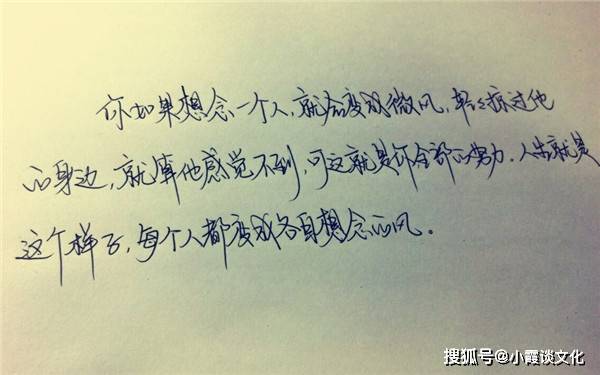 你如果想念一个人，就会变成微风，轻轻掠过他
的身边，就算他感觉不到，可这就是你全部的努力。人生就是
这个样子，每个人都变成各自想念的风。
搜狐号@小霞谈文化